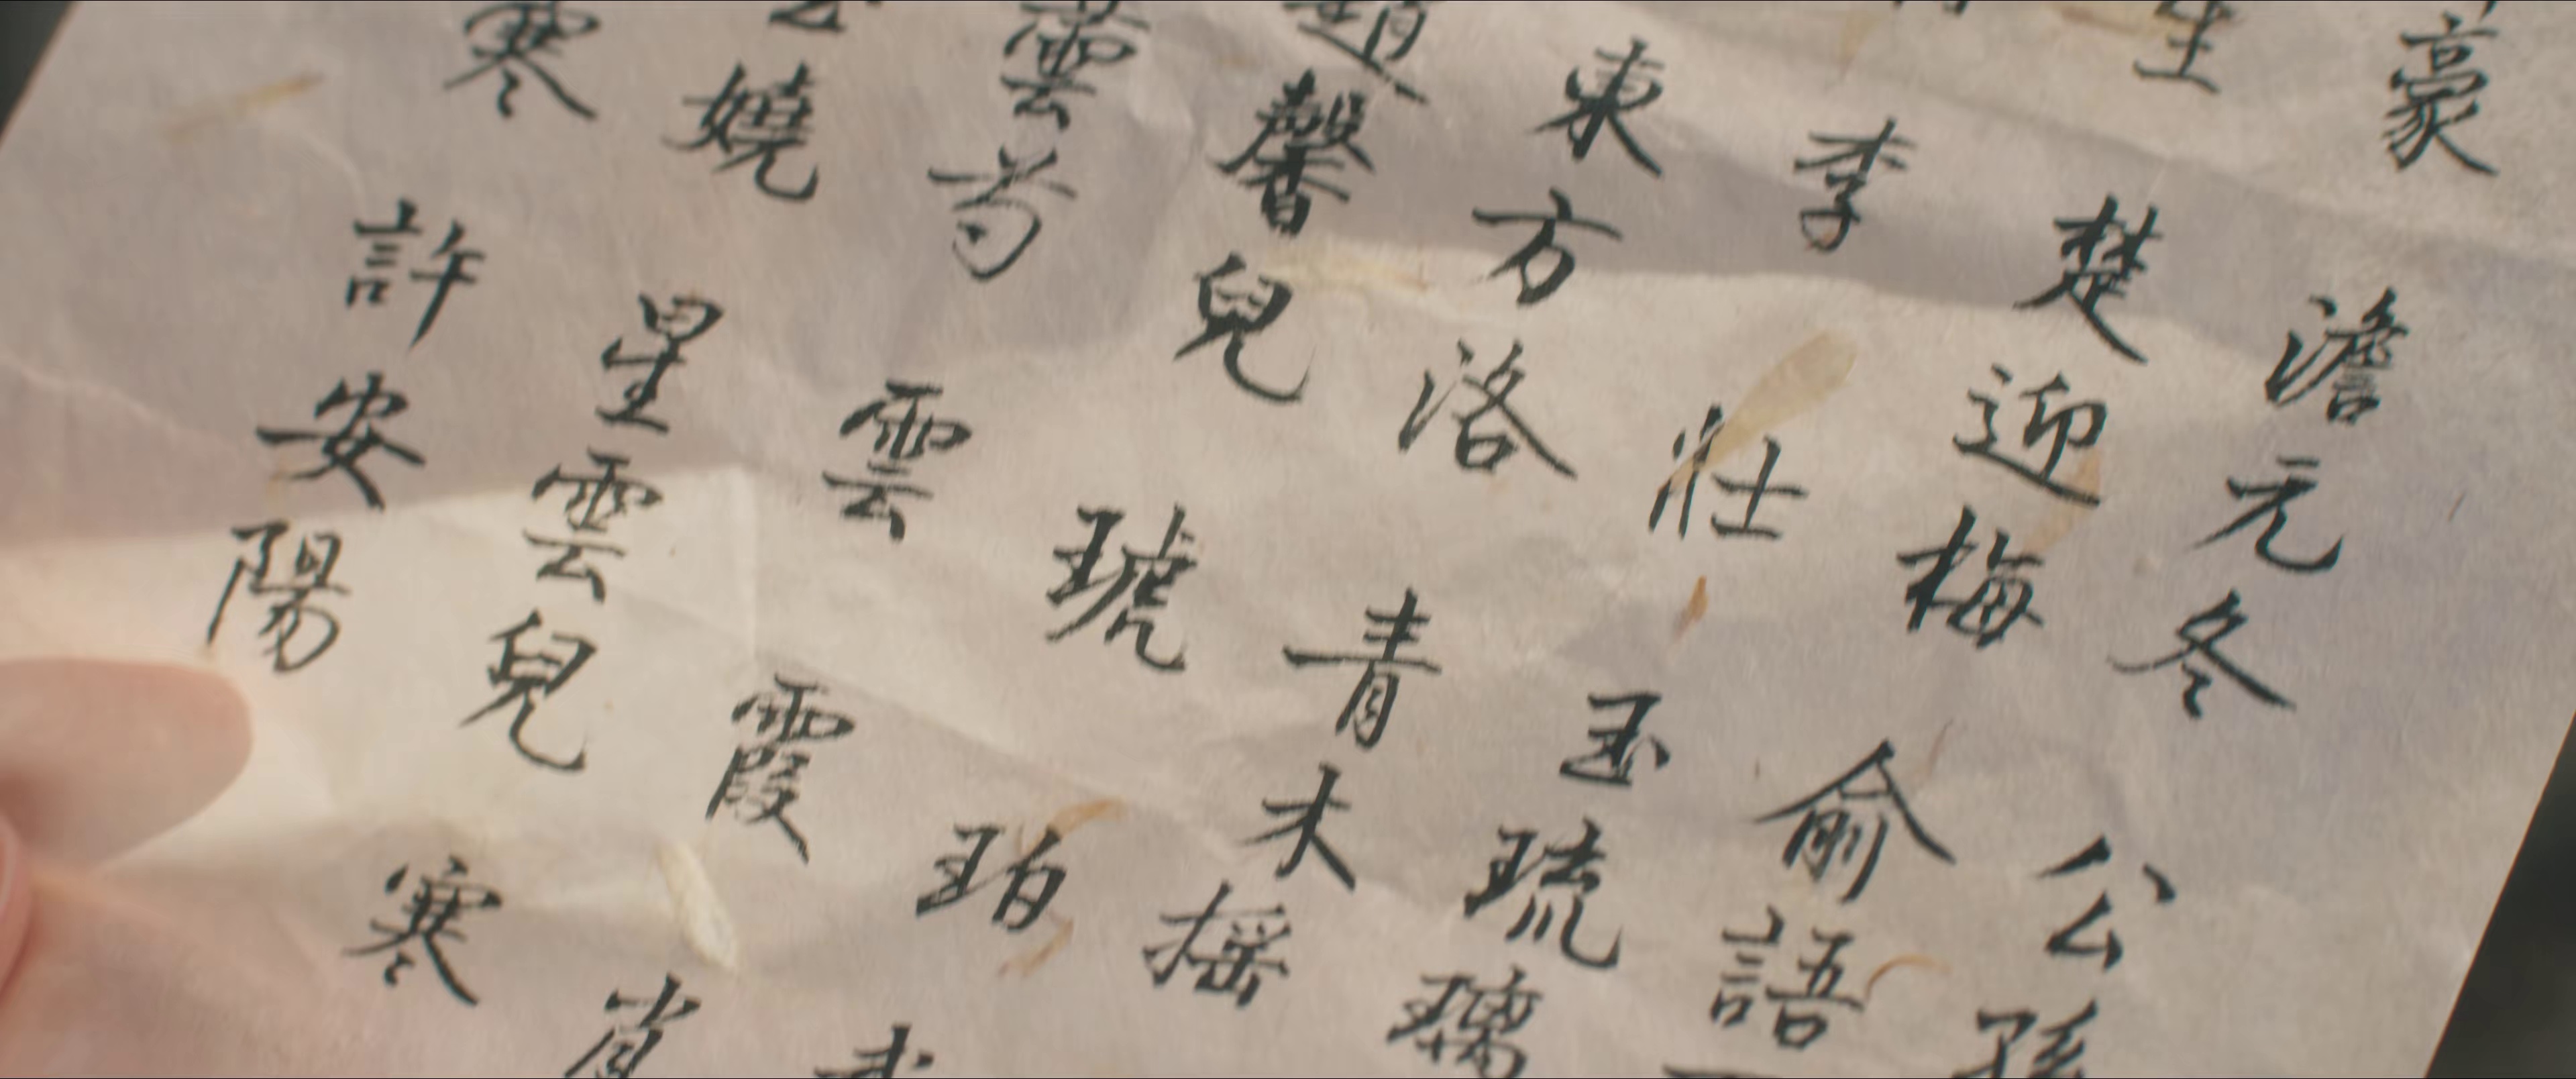 豪 澹元冬 公孫
生 楚迎梅 俞語
李 壯 玉琉璃
東方洛 青木搖
趙馨兒 琥珀
雲芍 雲霞
嬈 星雲兒 寒
寒 許安陽